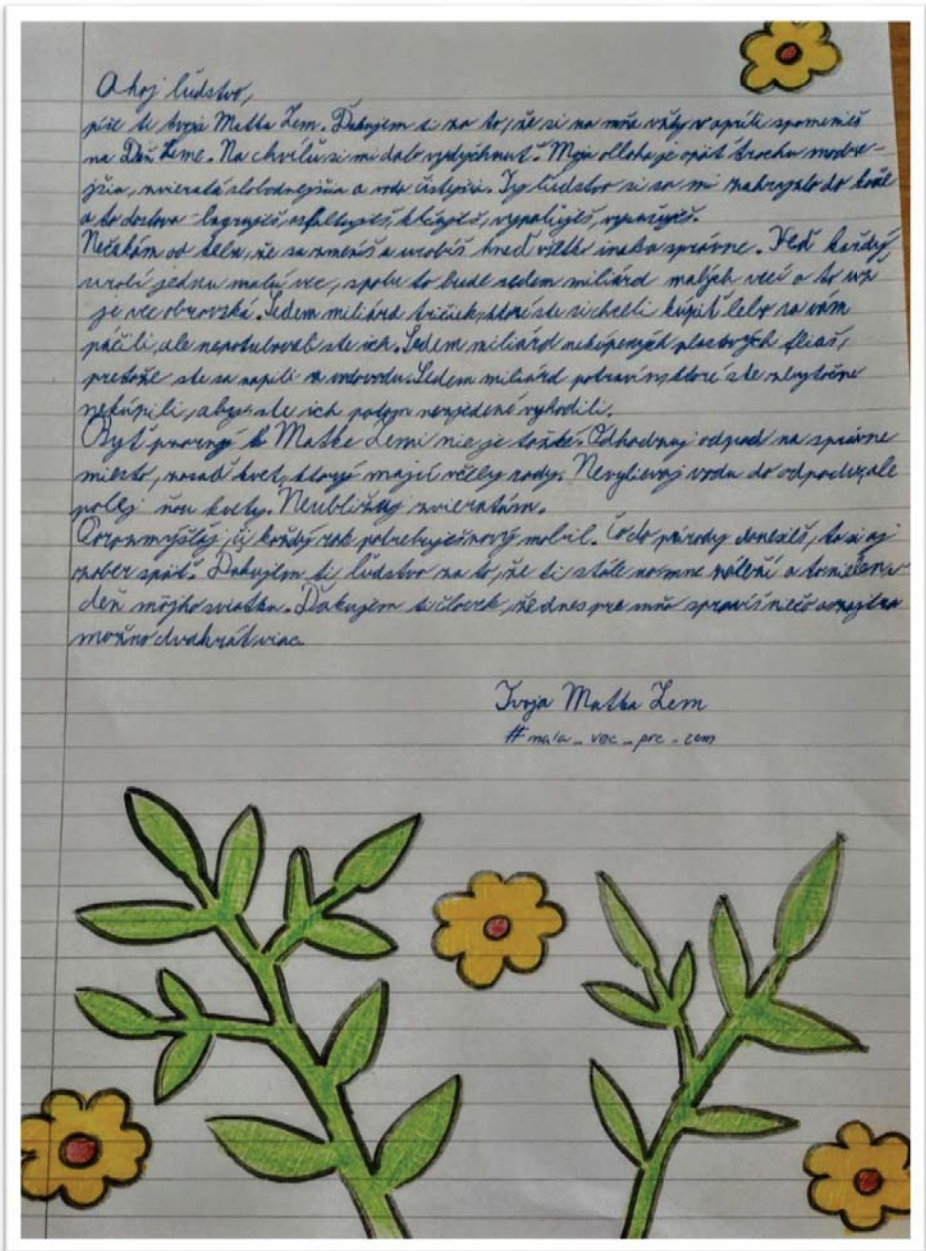 Ahoj ľudstvo,
píše ti tvoja Matka Zem. Ďakujem ti za to, že si na mňa vždy v apríli spomenieš
na Deň Zeme. Na chvíľu si mi dalo vydýchnuť. Moja obloha je opäť trochu modre-
jšia, zvieratá slobodnejšie a voda čistejšia. Ty ľudstvo si sa mi zahryzlo do kože
a to doslova - bagruješ, asfaltuješ, klčuješ, vypaľuješ,
Nečakám od teba, že sa zmeníš a urobíš hneď všetko inak a správne. Keď každý
urobí jednu malú vec, spolu to bude sedem miliárd malých vecí a to už
je vec obrovská. Sedem miliárd tričiek, ktoré ste si chceli kúpiť lebo sa vám
páčili, ale nepotrebovali ste ich. Sedem miliárd nekúpených plastových fliaš,
pretože ste sa napili z vodovodu. Sedem miliárd potravín, ktoré ste zbytočne
nekúpili, aby ste ich potom nezjedené vyhodili.
Byť pozorný k Matke Zemi nie je ťažké. Odhadzuj odpad na správne
miesto, zasaď kvet, ktorý majú včely rady. Nevylievaj vodu do odpadu, ale
polej ňou kvety. Neubližuj zvieratám.
Porozmýšľaj, či každý rok potrebuješ nový mobil. Čo do prírody donesieš, to si aj
zober späť. Ďakujem ti, ľudstvo za to, že ti stále na mne záleží a to nielen v
deň môjho sviatku. Ďakujem ti človek, že dnes pre mňa spravíš niečo a zajtra
možno dvakrát viac.
Tvoja Matka Zem
#mala_vec_pre_zem